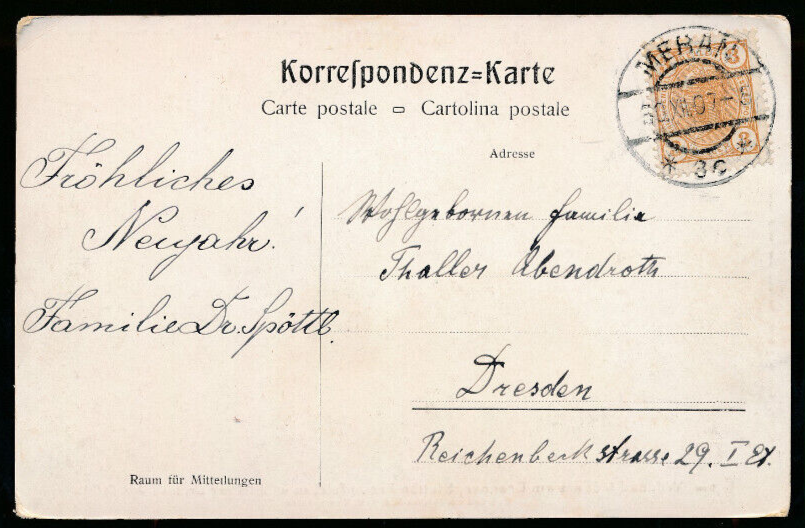 Korrespondenz=Karte
Carte postale Cartolina postale
MERAN
XII.07
* 3c *
3
3
Adresse
Fröhliches
Neujahr!
Familie Dr. Spöttl.
Wohlgebornen Familie
Thaller Abendroth
Dresden
strasse 29. I Et.
Raum für Mitteilungen